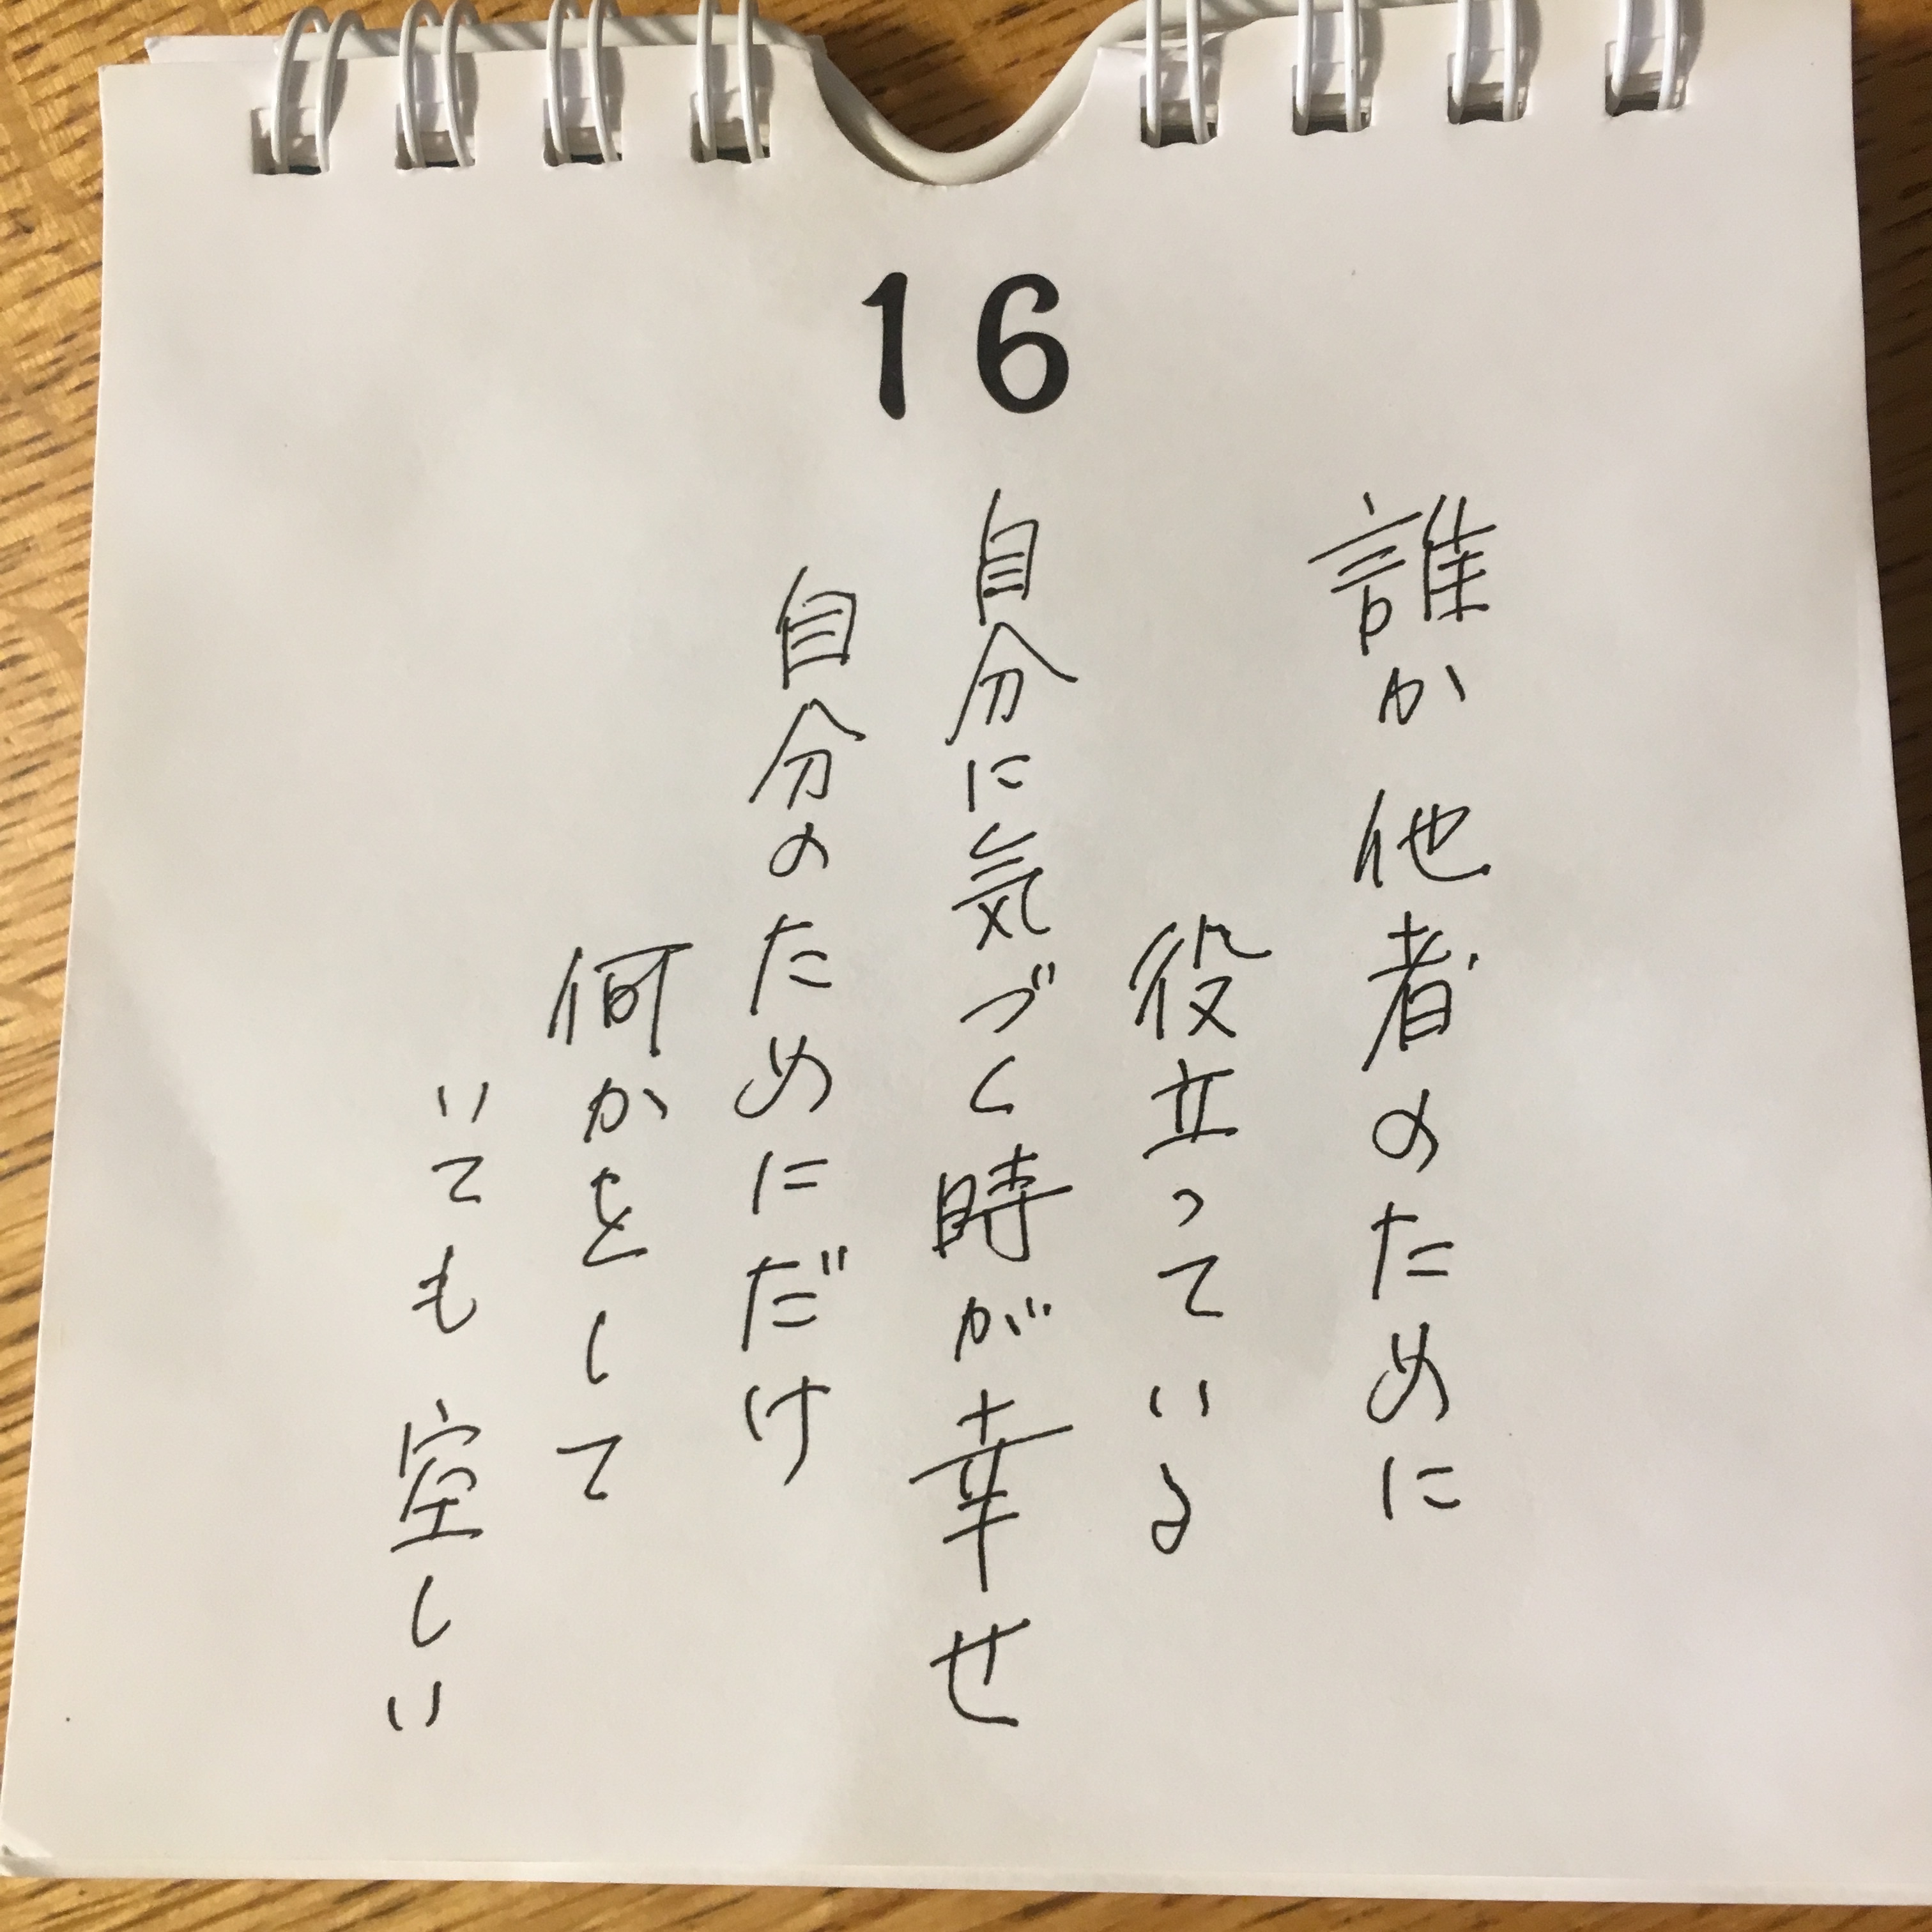 16
誰か 他者のために
役立っている
自分に気づく時が幸せ
自分のためにだけ
何かをして
いても 空しい